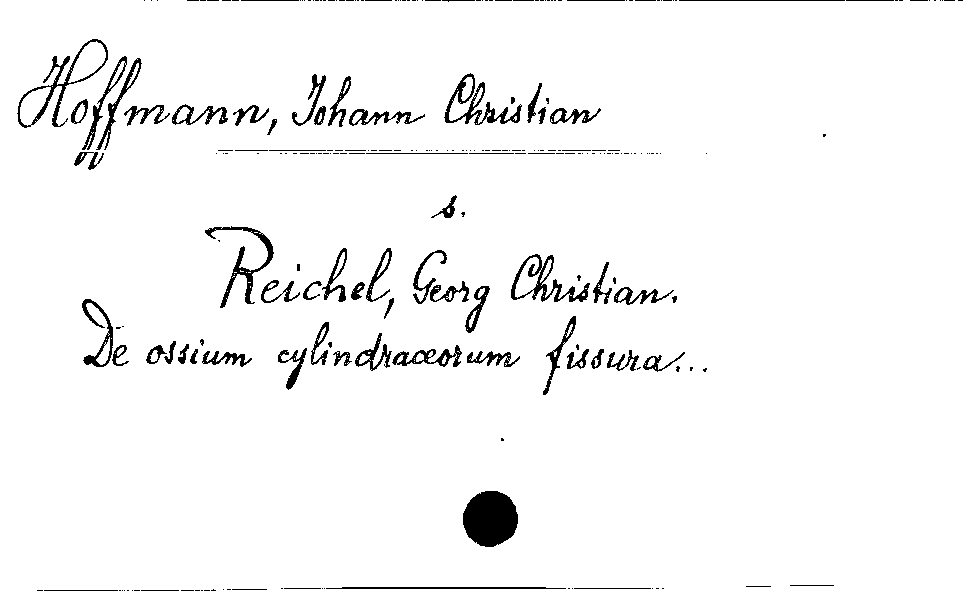 Hoffmann, Johann Christian
s.
Reichel, Georg Christian.
De ossium cylindraceorum fissura...